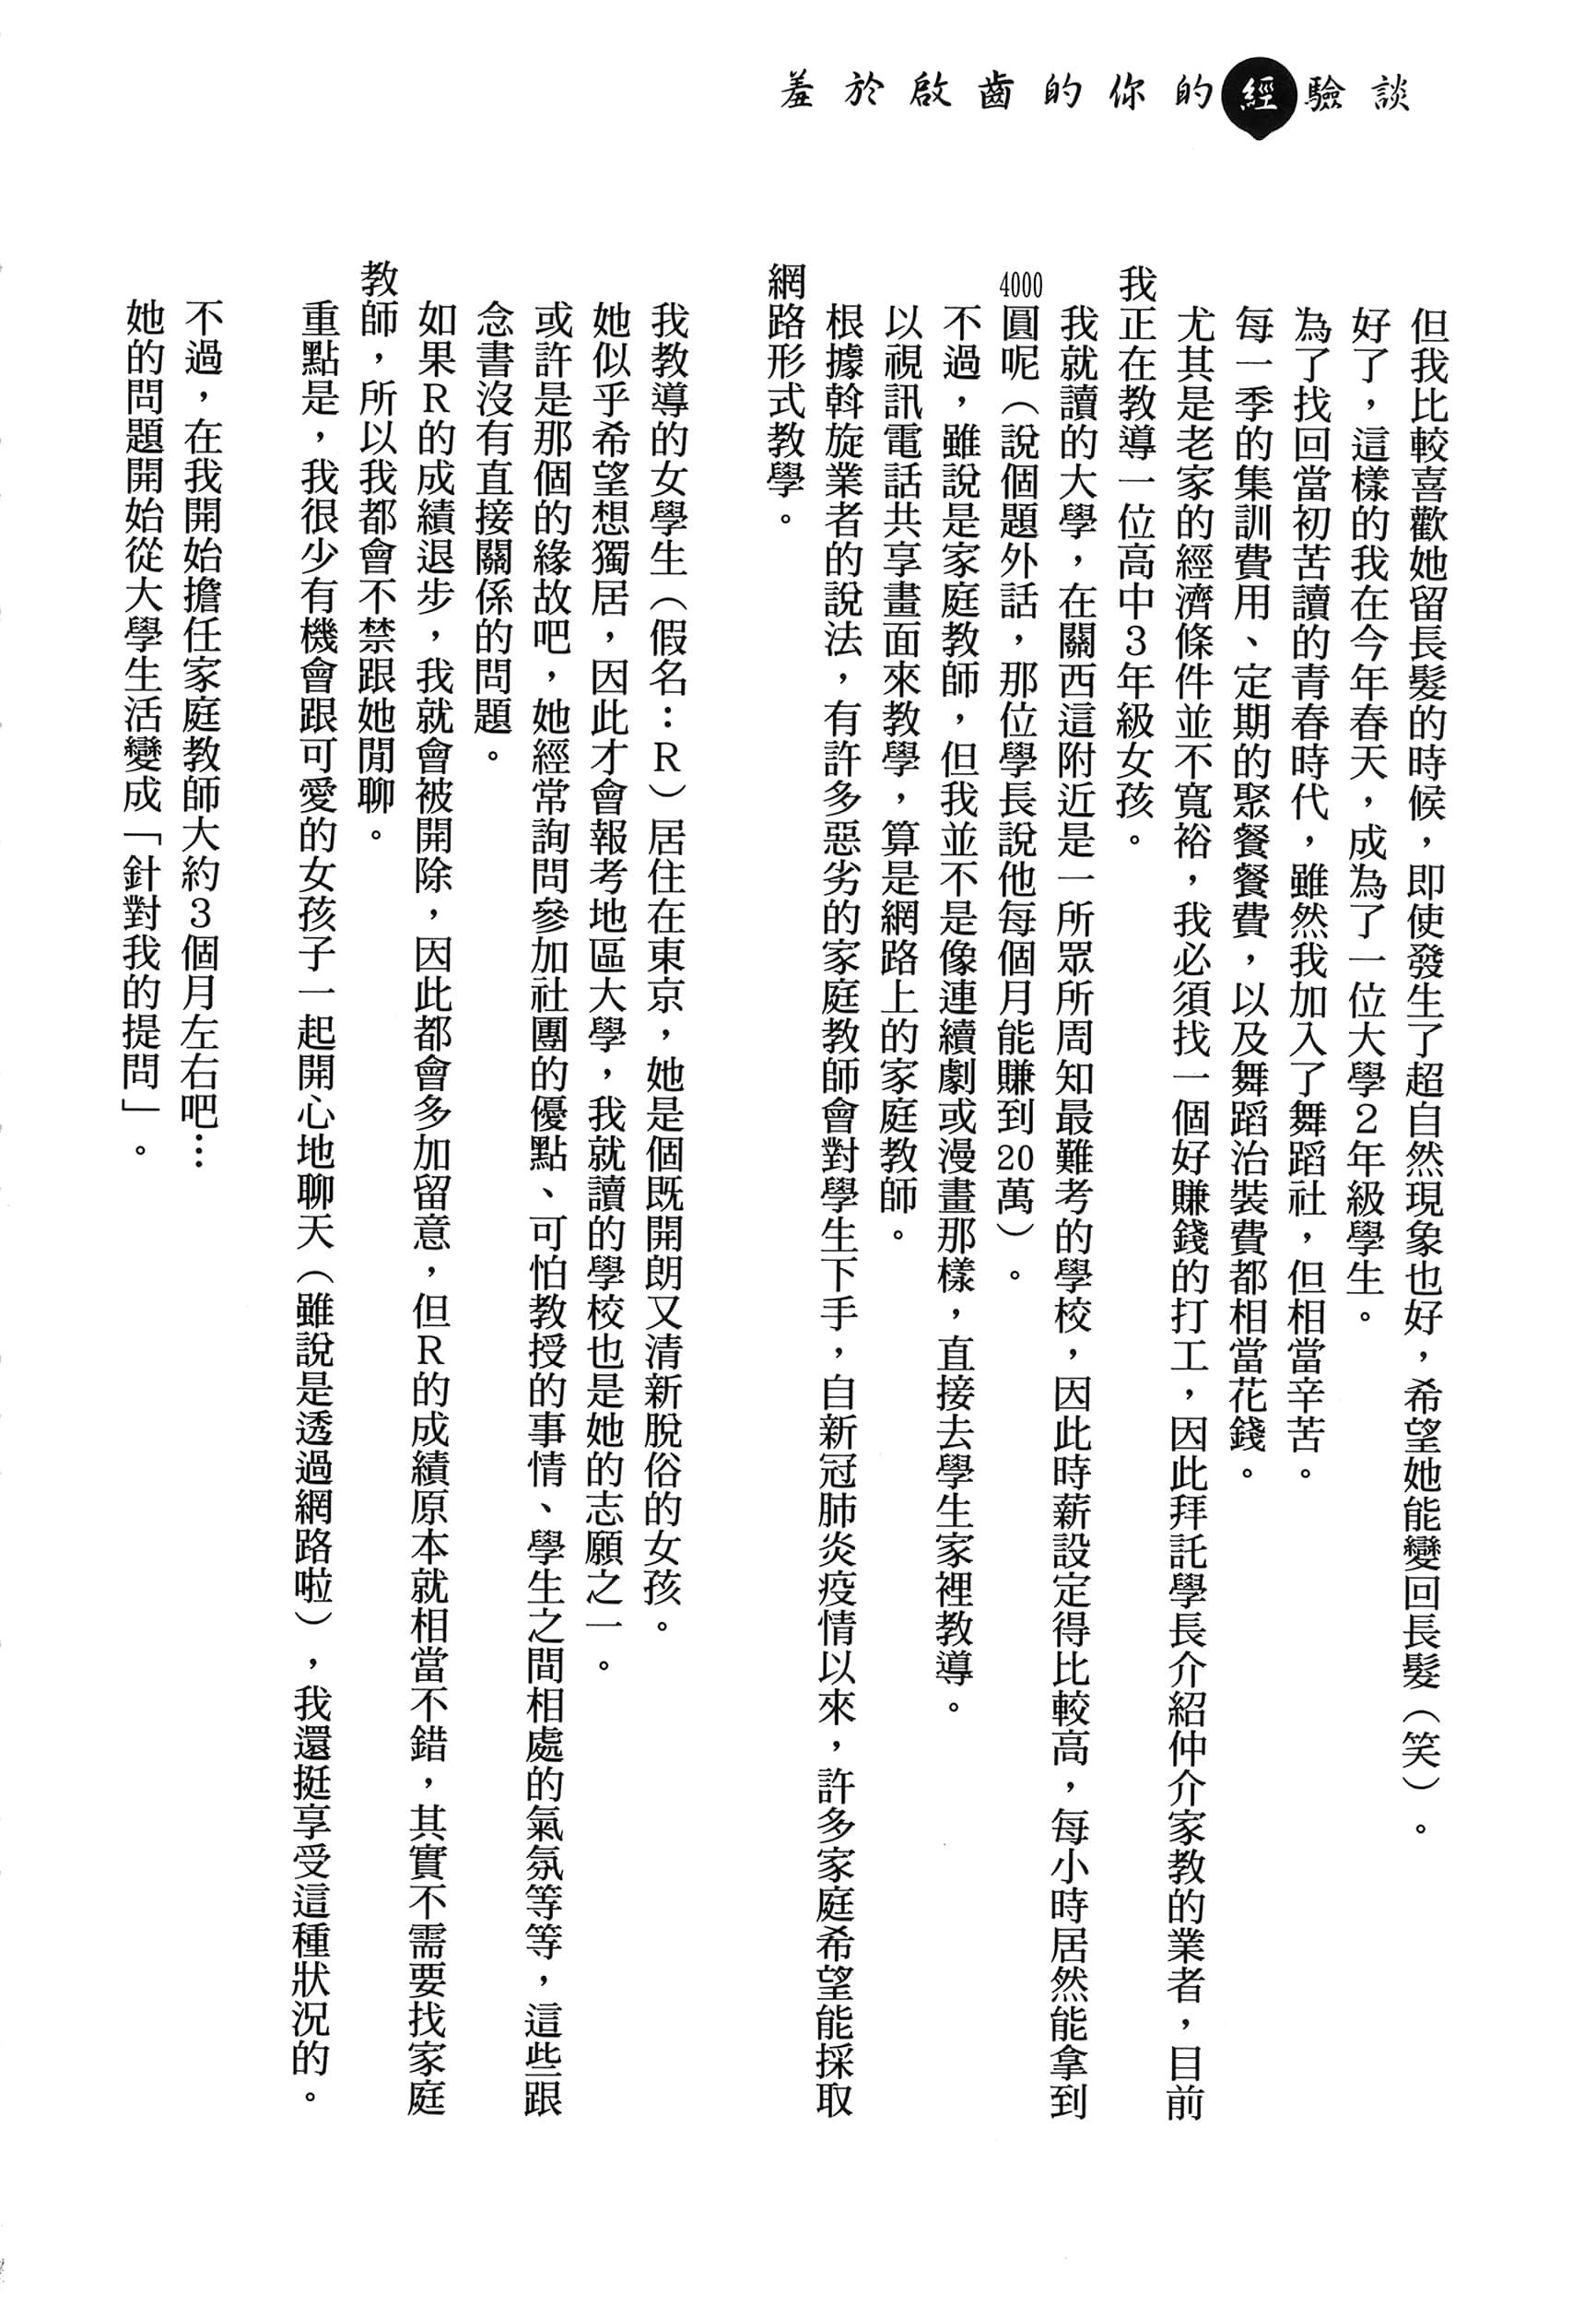 羞於啟齒的你的經驗談
但我比較喜歡她留長髮的時候，即使發生了超自然現象也好，希望她能變回長髮（笑）。
好了，這樣的我在今年春天，成為了一位大學2年級學生。
為了找回當初苦讀的青春時代，雖然我加入了舞蹈社，但相當辛苦。
每一季的集訓費用、定期的聚餐餐費，以及舞蹈治裝費都相當花錢。
尤其是老家的經濟條件並不寬裕，我必須找一個好賺錢的打工，因此拜託學長介紹仲介家教的業者，目前
我正在教導一位高中3年級女孩。
我就讀的大學，在關西這附近是一所眾所周知最難考的學校，因此時薪設定得比較高，每小時居然能拿到
4000圓呢（說個題外話，那位學長說他每個月能賺到20萬）。
不過，雖說是家庭教師，但我並不是像連續劇或漫畫那樣，直接去學生家裡教導。
以視訊電話共享畫面來教學，算是網路上的家庭教師。
根據斡旋業者的說法，有許多惡劣的家庭教師會對學生下手，自新冠肺炎疫情以來，許多家庭希望能採取
網路形式教學。
我教導的女學生（假名：R）居住在東京，她是個既開朗又清新脫俗的女孩。
她似乎希望想獨居，因此才會報考地區大學，我就讀的學校也是她的志願之一。
或許是那個的緣故吧，她經常詢問參加社團的優點、可怕教授的事情、學生之間相處的氣氛等等，這些跟
念書沒有直接關係的問題。
如果R的成績退步，我就會被開除，因此都會多加留意，但R的成績原本就相當不錯，其實不需要找家庭
教師，所以我都會不禁跟她閒聊。
重點是，我很少有機會跟可愛的女孩子一起開心地聊天（雖說是透過網路啦），我還挺享受這種狀況的。
不過，在我開始擔任家庭教師大約3個月左右吧…
她的問題開始從大學生活變成「針對我的提問」。